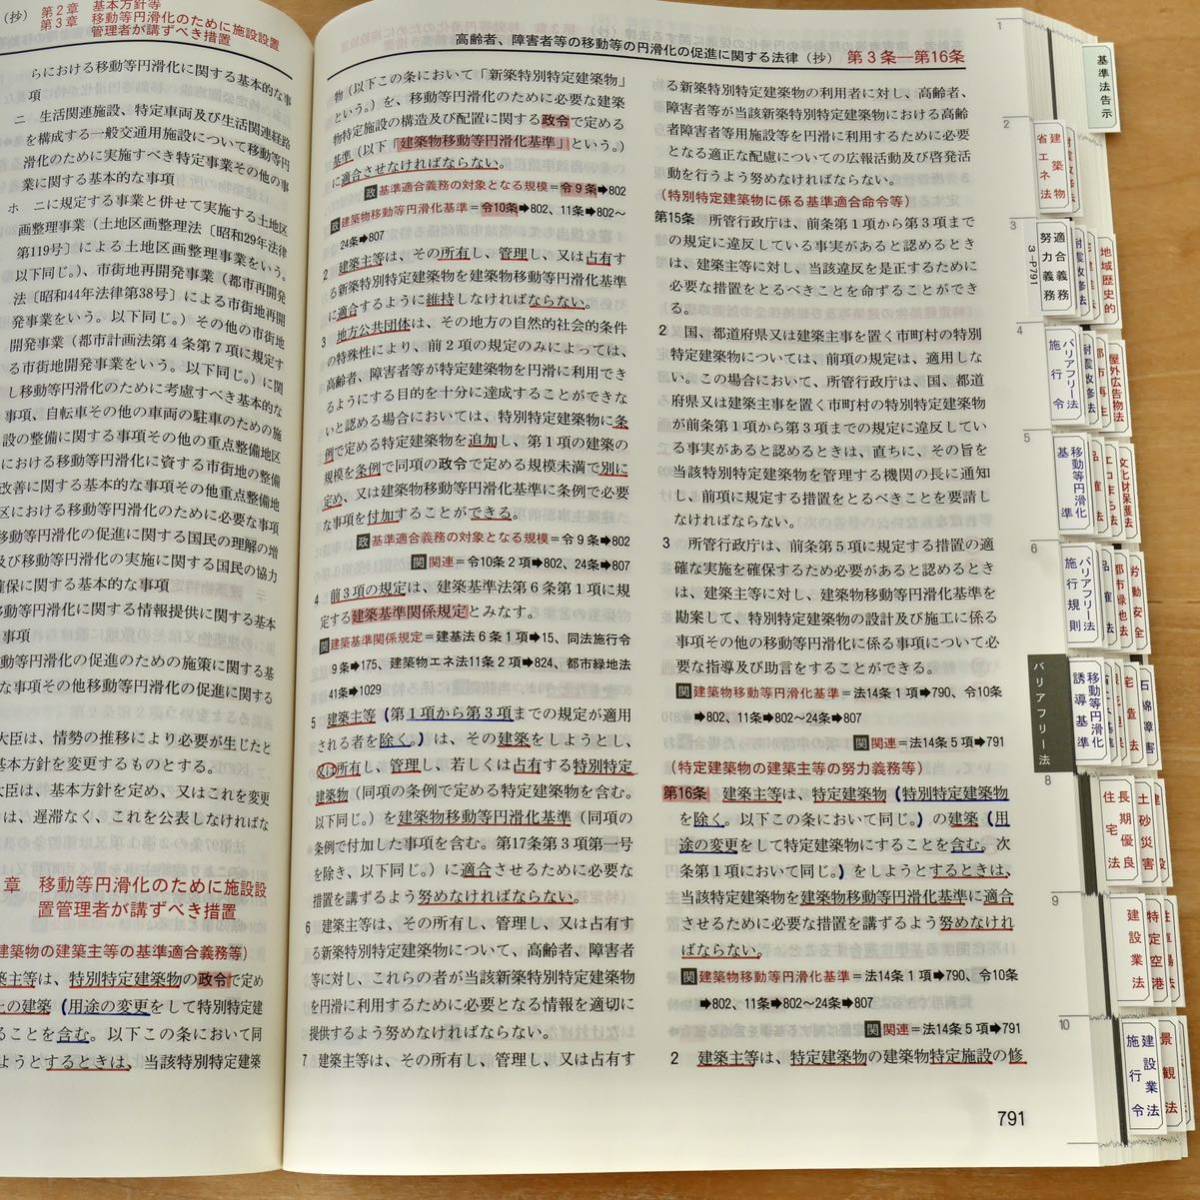 (抄) 第2章 基本方針等
第3章 移動等円滑化のために施設設置
管理者が講ずべき措置
らにおける移動等円滑化に関する基本的な事
項
ニ 生活関連施設、特定車両及び生活関連経路
を構成する一般交通用施設について移動等円
滑化のために実施すべき特定事業その他の事
業に関する基本的な事項
ホ ニに規定する事業と併せて実施する土地区
画整理事業(土地区画整理法〔昭和29年法律
第119号〕による土地区画整理事業をいう。
以下同じ。)、市街地再開発事業(都市再開発
法〔昭和44年法律第38号〕による市街地再開
発事業をいう。以下同じ。)その他の市街地
開発事業(都市計画法第4条第7項に規定す
る市街地開発事業をいう。以下同じ。)に関
し移動等円滑化のために考慮すべき基本的な
事項、自転車その他の車両の駐車のための施
設の整備に関する事項その他の重点整備地区
における移動等円滑化に資する市街地の整備
改善に関する基本的な事項その他重点整備地
区における移動等円滑化のために必要な事項
移動等円滑化の促進に関する国民の理解の増
及び移動等円滑化の実施に関する国民の協力
確保に関する基本的な事項
移動等円滑化に関する情報提供に関する基本
事項
動等円滑化の促進のための施策に関する基
な事項その他移動等円滑化の促進に関する
大臣は、情勢の推移により必要が生じたと
基本方針を変更するものとする。
大臣は、基本方針を定め、又はこれを変更
は、遅滞なく、これを公表しなければな
章 移動等円滑化のために施設設
置管理者が講ずべき措置
建築物の建築主等の基準適合義務等)
築主等は、特別特定建築物の政令で定め
上の建築(用途の変更をして特別特定建
ることを含む。以下この条において同
ようとするときは、当該特別特定建築
高齢者、障害者等の移動等の円滑化の促進に関する法律(抄) 第3条—第16条
物(以下この条において「新築特別特定建築物」
という。)を、移動等円滑化のために必要な建築
物特定施設の構造及び配置に関する政令で定める
基準(以下「建築物移動等円滑化基準」という。)
に適合させなければならない。
政 基準適合義務の対象となる規模=令9条➡802
政 建築物移動等円滑化基準=令10条➡802、11条➡802〜
24条➡807
2 建築主等は、その所有し、管理し、又は占有す
る新築特別特定建築物を建築物移動等円滑化基準
に適合するように維持しなければならない。
3 地方公共団体は、その地方の自然的社会的条件
の特殊性により、前2項の規定のみによっては、
高齢者、障害者等が特定建築物を円滑に利用でき
るようにする目的を十分に達成することができな
いと認める場合においては、特別特定建築物に条
例で定める特定建築物を追加し、第1項の建築の
規模を条例で同項の政令で定める規模未満で別に
定め、又は建築物移動等円滑化基準に条例で必要
な事項を付加することができる。
政 基準適合義務の対象となる規模=令9条➡802
関 関連=令10条2項➡802、24条➡807
4 前3項の規定は、建築基準法第6条第1項に規
定する建築基準関係規定とみなす。
関 建築基準関係規定=建基法6条1項➡15、同法施行令
9条➡175、建築物エネ法11条2項➡824、都市緑地法
41条➡1029
5 建築主等(第1項から第3項までの規定が適用
される者を除く。)は、その建築をしようとし、
又は所有し、管理し、若しくは占有する特別特定
建築物(同項の条例で定める特定建築物を含む。
以下同じ。)を建築物移動等円滑化基準(同項の
条例で付加した事項を含む。第17条第3項第一号
を除き、以下同じ。)に適合させるために必要な
措置を講ずるよう努めなければならない。
6 建築主等は、その所有し、管理し、又は占有す
る新築特別特定建築物について、高齢者、障害者
等に対し、これらの者が当該新築特別特定建築物
を円滑に利用するために必要となる情報を適切に
提供するよう努めなければならない。
7 建築主等は、その所有し、管理し、又は占有す
る新築特別特定建築物の利用者に対し、高齢者、
障害者等が当該新築特別特定建築物における高齢
者障害者等用施設等を円滑に利用するために必要
となる適正な配慮についての広報活動及び啓発活
動を行うよう努めなければならない。
(特別特定建築物に係る基準適合命令等)
第15条 所管行政庁は、前条第1項から第3項まで
の規定に違反している事実があると認めるとき
は、建築主等に対し、当該違反を是正するために
必要な措置をとるべきことを命ずることができ
る。
2 国、都道府県又は建築主事を置く市町村の特別
特定建築物については、前項の規定は、適用しな
い。この場合において、所管行政庁は、国、都道
府県又は建築主事を置く市町村の特別特定建築物
が前条第1項から第3項までの規定に違反してい
る事実があると認めるときは、直ちに、その旨を
当該特別特定建築物を管理する機関の長に通知
し、前項に規定する措置をとるべきことを要請し
なければならない。
3 所管行政庁は、前条第5項に規定する措置の適
確な実施を確保するため必要があると認めるとき
は、建築主等に対し、建築物移動等円滑化基準を
勘案して、特別特定建築物の設計及び施工に係る
事項その他の移動等円滑化に係る事項について必
要な指導及び助言をすることができる。
関 建築物移動等円滑化基準=法14条1項➡790、令10条
➡802、11条➡802〜24条➡807
関 関連=法14条5項➡791
(特定建築物の建築主等の努力義務等)
第16条 建築主等は、特定建築物(特別特定建築物
を除く。以下この条において同じ。)の建築(用
途の変更をして特定建築物にすることを含む。次
条第1項において同じ。)をしようとするときは、
当該特定建築物を建築物移動等円滑化基準に適合
させるために必要な措置を講ずるよう努めなけれ
ばならない。
関 建築物移動等円滑化基準=法14条1項➡790、令10条
➡802、11条➡802〜24条➡807
関 関連=法14条5項➡791
2 建築主等は、特定建築物の建築物特定施設の修
791
1
基準法告示
2
建築物
省エネ法
耐震改修法
3
適合義務
努力義務
3-P791
地域歴史的
4
バリアフリー法
施行令
耐震改修法
都市再生
屋外広告物法
5
移動等円滑化
基準
品確法
エコまち法
文化財保護法
6
バリアフリー法
施行規則
品確法
都市緑地法
労働安全
バリアフリー法
移動等円滑化
誘導基準
宅造法
石綿障害
8
長期優良
住宅法
土砂災害
9
建設業法
特定空港
10
建設業法
施行令
景観法